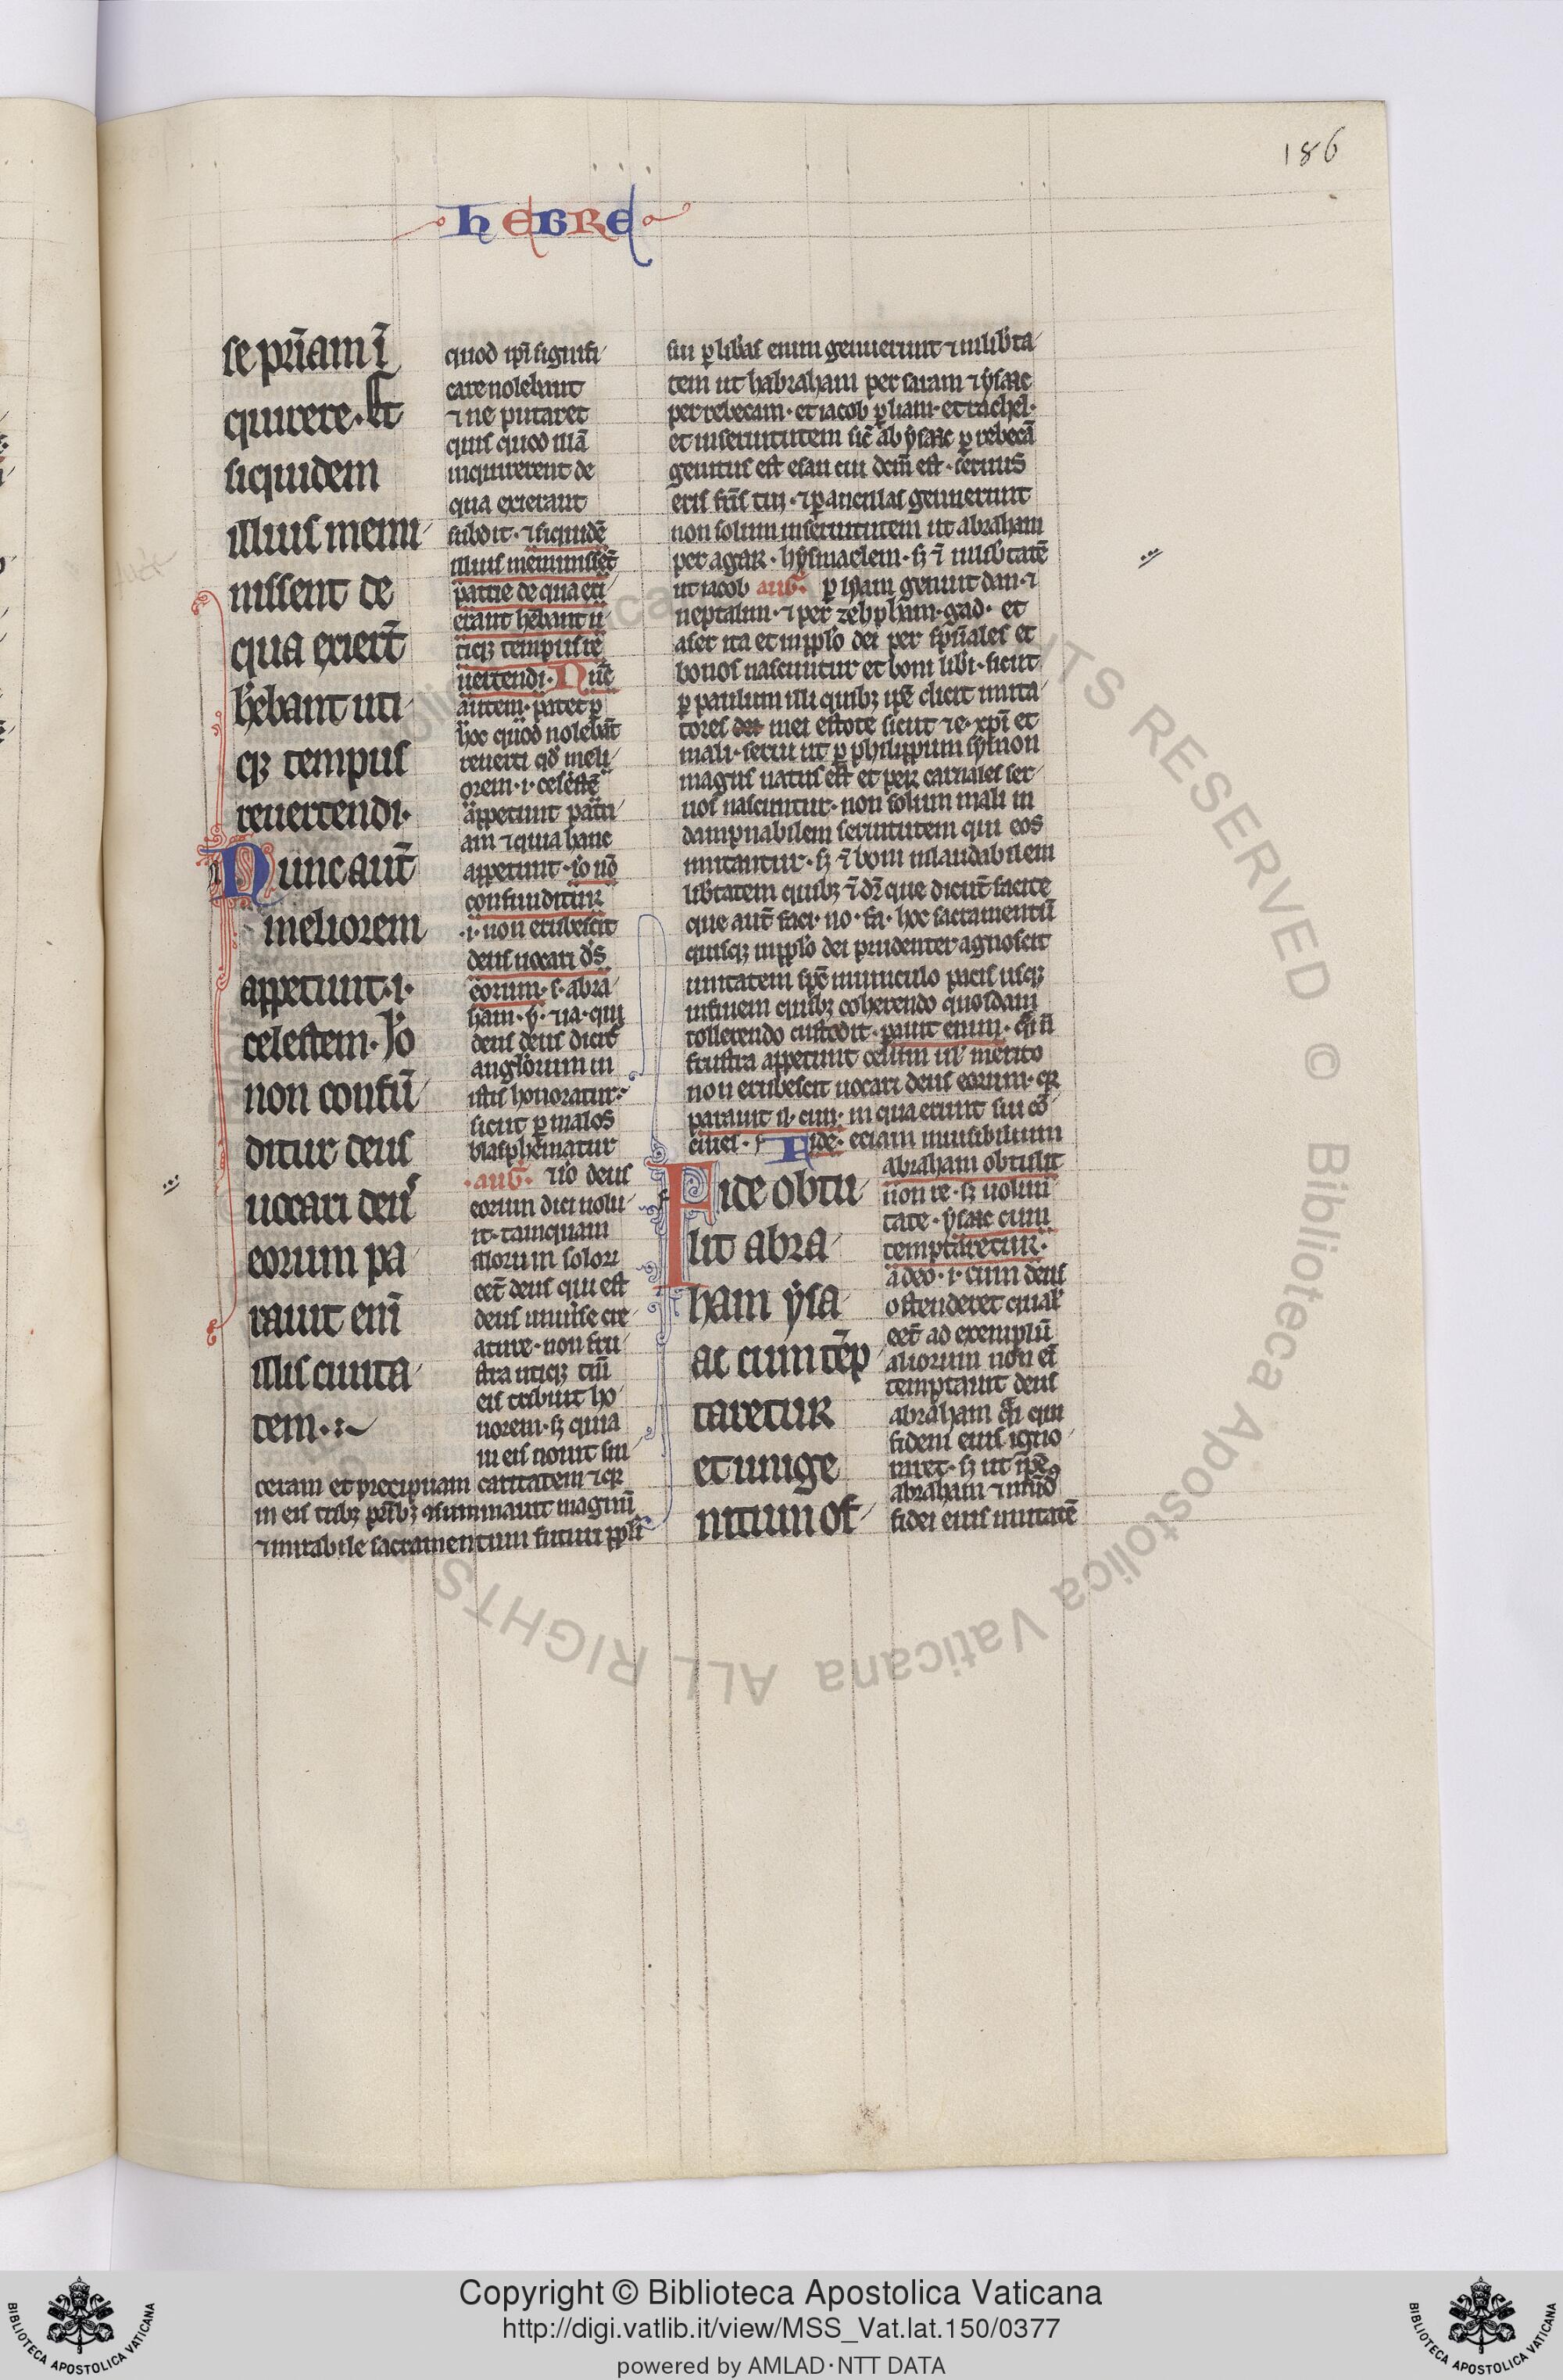 186
hEBRE
se pr̄iam ī
quirere. Et
siquidem
illius memi
nissent de
qua exiert̄
hēbant uti
qꝫ tempus
reuertendi.
Nunc aut̄
meliorem
appetunt.i.
celestem. Io
non confū
ditur deus
uocari deuˢ
eorum pa
rauit eni̅
illis ciuita
tem.
quod ip̄i signifi
care nolebant
⁊ ne putaret
quis quod illā
inquirerent de
qua exierant
subdit. ⁊ siquidē
illius meminissēt
patrie de qua exi
erant hēbant u
tiqꝫ tempus re
uertendi. Nūc
autem. patet ꝑ
hoc quod nolebāt
reuerti qd̄ meli
orem .i. celestē
appetunt patri
am ⁊ quia hanc
appetunt. io nō
confunditur
.i. non erubescit
deus uocari dˢ
eorum. s. abra
ham. ẏ. ⁊ ia. qui
deus deus dicit̄
anglorum in
istis honoratur
sicut ꝑ malos
blasphematur
.auḡ. Uo deus
eorum dici uolu
it. tamquam
illorum solom
eēt deus qui est
deus uniuˢse cre
ature. non fru
stra utiqꝫ tm̄
eis tribuit ho
norem. sꝫ quia
in eis nouit sin
ceram et precipuam caritatem ⁊ qꝛ
in eis tribꝫ pr̄ibꝫ ꝯsummauit magnū
⁊ mirabile sacramentum futuri ppl̄i
sui ꝑ libas enim genuerunt ⁊ in lib̄ta
tem ut habraham per saram ⁊ ẏsaac
per rebecam. et iacob ꝑ liam. et rachel.
et in seruitutem sic̄ ab ẏsaac ꝑ rebecā
genitus est esau cui dcm̄ est. seruus
eris fr̄is tui. ⁊ ꝑ ancillas genuerunt
non solum in seruitutem ut abraham
per agar. hẏsmaelem. sꝫ ⁊̄ in lib̄tatē
ut iacob auḡ. ꝑ balam genuit dan. ⁊
neptalim. ⁊ per zelpham. gad. et
aser ita et in pplo dei per sp̄uales et
bonos nascuntur et boni libi. sicut
ꝑ paulum illi quibꝫ ip̄e dicit imita
tores dei mei estote sicut ⁊ e. xp̄i et
mali. serui ut ꝑ philippum sẏmon
magus natus est et per carnales ser
uos nascuntur. non solum mali in
dampnabilem seruitutem qui eos
imitantur. sꝫ ⁊̄ boni in laudabilem
lib̄tatem quibꝫ ⁊̄ dr̄ que dicūt facite
que aut̄ faci. no. fa. hoc sacramentū
quisqꝫ in pplo dei prudenter agnoscit
unitatem spc̄ in uinculo pacis usqꝫ
in finem quibꝫ coherendo quosdam
tollerendo custodit. pauit enim. qi n̄
frustra appetunt celum ul̄ merito
non erubescit uocari deus eorum. qꝛ
parauit il. ciui. in qua erunt sui cō
ciues. Fide. etiam inuisibilium
Fide obtu
lit abra
ham ẏsa
ac cum tēp
taretur
et unige
nitum of
abraham obtulit
non re. sꝫ uolun
tate. ẏsaac cum
temptaretur.
a deo .i. cum deus
ostenderet qualˢ
eēt ad exemplū
aliorum non ei̅
temptauit deus
abraham qi qui
fidem eius igno
raret. sꝫ ut ip̄e
abraham ⁊ mūd
fidei eius imitatē
Copyright © Biblioteca Apostolica Vaticana
http://digi.vatlib.it/view/MSS_Vat.lat.150/0377
powered by AMLAD·NTT DATA
BIBLIOTECA APOSTOLICA VATICANA
BIBLIOTECA APOSTOLICA VATICANA